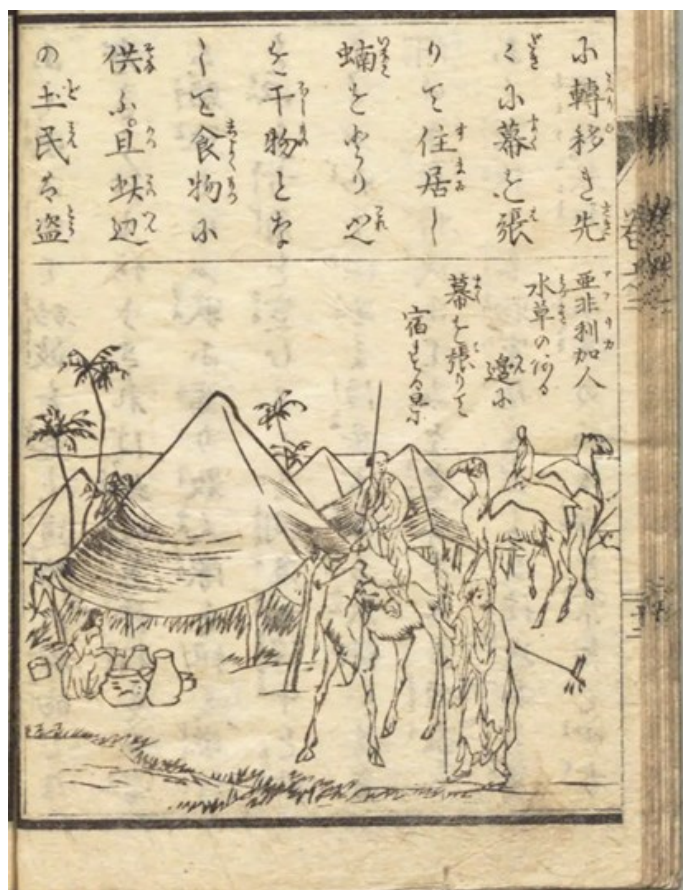 に轉移し先
〲に幕を張
りて住居し
蝻をとり之
を干物とな
して食物に
供ふ。且此辺
の土民は盗
亜非利加人
水草のある
邊に
幕を張りて
宿する